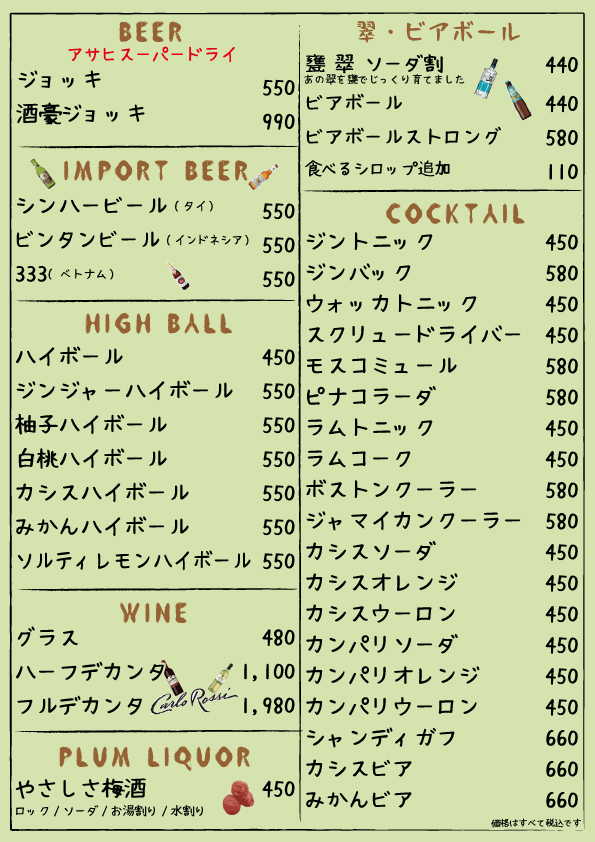 BEER
アサヒスーパードライ
ジョッキ 550
酒豪ジョッキ 990
IMPORT BEER
シンハービール(タイ) 550
ビンタンビール(インドネシア) 550
333(ベトナム) 550
HIGH BALL
ハイボール 450
ジンジャーハイボール 550
柚子ハイボール 550
白桃ハイボール 550
カシスハイボール 550
みかんハイボール 550
ソルティレモンハイボール 550
WINE
グラス 480
ハーフデカンタ 1,100
フルデカンタ Carlo Rossi 1,980
PLUM LIQUOR
やさしさ梅酒 450
ロック/ソーダ/お湯割り/水割り
翠・ビアボール
甕 翠 ソーダ割 440
あの翠を甕でじっくり育てました
ビアボール 440
ビアボールストロング 580
食べるシロップ追加 110
COCKTAIL
ジントニック 450
ジンバック 580
ウォッカトニック 450
スクリュードライバー 450
モスコミュール 580
ピナコラーダ 580
ラムトニック 450
ラムコーク 450
ボストンクーラー 580
ジャマイカンクーラー 580
カシスソーダ 450
カシスオレンジ 450
カシスウーロン 450
カンパリソーダ 450
カンパリオレンジ 450
カンパリウーロン 450
シャンディガフ 660
カシスビア 660
みかんビア 660
価格はすべて税込です